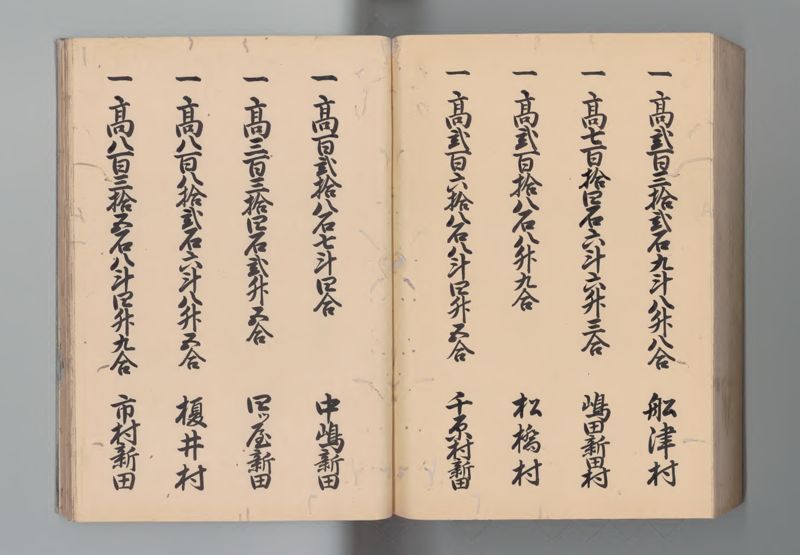 一高弐百三拾弐石九斗八升八合 船津村
一高七百拾四石六斗六升三合 嶋田新田村
一高弐百拾八石八升九合 松橋村
一高弐百六拾八石八斗四升五合 千原村新田
一高百弐拾八石七斗四合 中嶋新田
一高三百三拾四石弐升五合 四ッ屋新田
一高八百八拾弐石六斗八升五合 榎井村
一高八百三拾五石八斗四升九合 市村新田